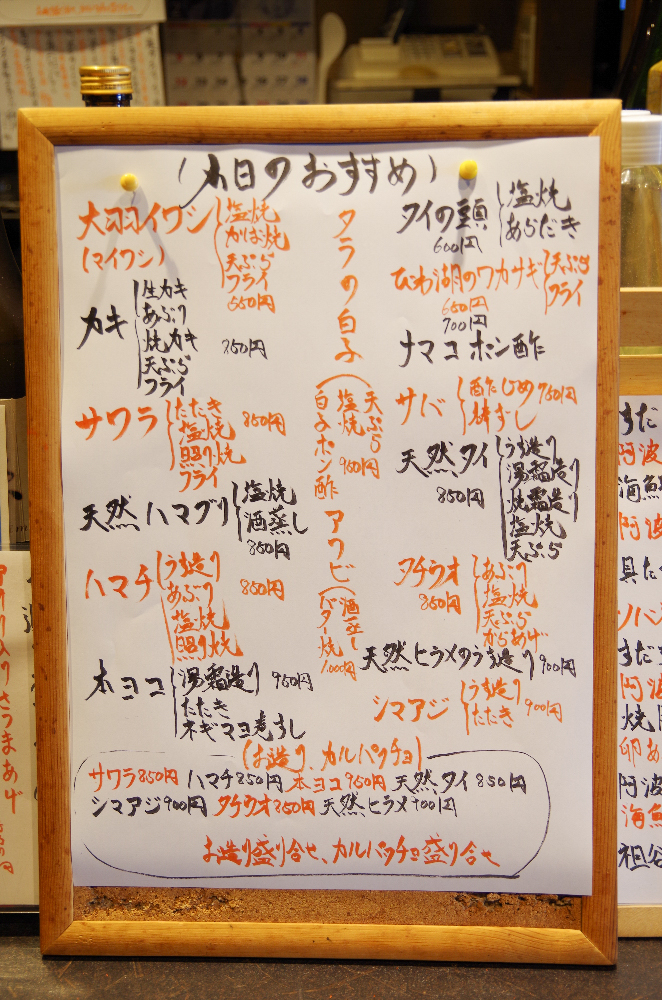 （本日のおすすめ）
大羽イワシ
（マイワシ）
塩焼
かば焼
天ぷら
フライ
550円
カキ
生カキ
あぶり
焼カキ
天ぷら
フライ
850円
サワラ
たたき
塩焼
照り焼
フライ
850円
天然ハマグリ
塩焼
酒蒸し
850円
ハマチ
うす造り
あぶり
塩焼
照り焼
850円
本ヨコ
湯霜造り
たたき
ネギマヨ巻ずし
950円
タラの白子
（天ぷら
塩焼
白子ポン酢
950円
アワビ
（酒蒸し
バター焼
1,000円
タイの頭
600円
塩焼
あらだき
びわ湖のワカサギ
天ぷら
フライ
650円
700円
ナマコポン酢
サバ
酢じめ
棒ずし
750円
天然タイ
850円
うす造り
湯霜造り
焼霜造り
塩焼
天ぷら
タチウオ
850円
あぶり
塩焼
天ぷら
からあげ
天然ヒラメのうす造り 900円
シマアジ
うす造り
たたき
900円
（お造り、カルパッチョ）
サワラ850円 ハマチ850円 本ヨコ950円 天然タイ850円
シマアジ900円 タチウオ850円 天然ヒラメ900円
お造り盛り合せ、カルパッチョ盛り合せ
すだ
阿波
海鮮
阿波
具た
ソバ
すだ
阿波
焼
卵
阿波
海鮮
祖谷
入りさつまあげ